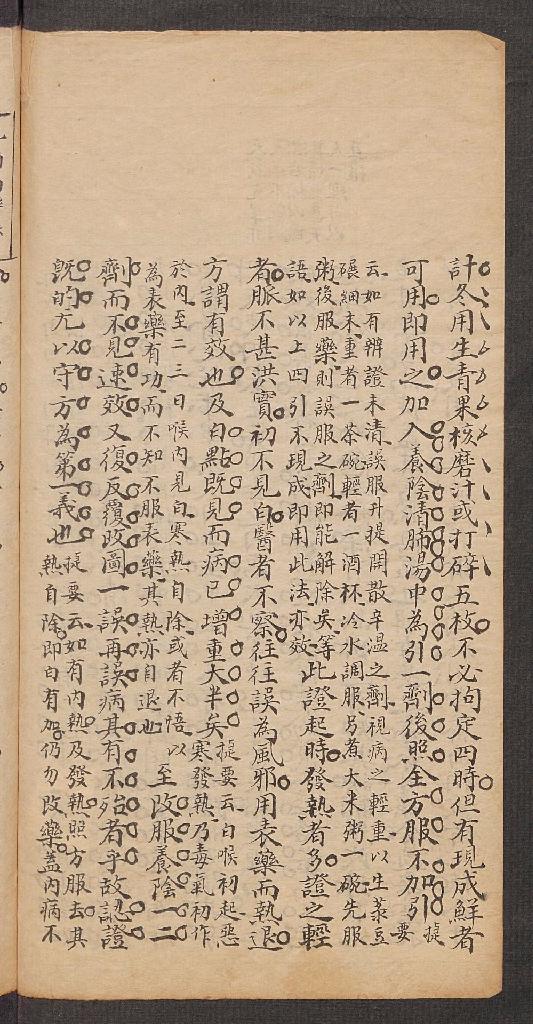 計冬用生青果核磨汁或打碎五枚不必拘定四時但有現成鮮者
可用即用之加入養陰清肺湯中為引一劑後照全方服不加引提要
云如有辨證未清誤服升提開散辛温之劑視病之輕重以生菉豆
碾細末重者一茶碗輕者一酒杯冷水調服另煮大米粥一碗先服
粥後服藥則誤服之劑即能解除矣等
語如以上四引不現成即用此法亦效
此證起時發熱者多證之輕
者脈不甚洪實初不見白醫者不察往往誤為風邪用表藥而熱退
方謂有效也及白點既見而病已增重大半矣
提要云白喉初起惡
寒發熱乃毒氣初作
於內至二三日喉內見白寒熱自除或者不悟以
為表藥有功而不知不服表藥其熱亦自退也
至改服養陰一二
劑而不見速效又復反覆改圖一誤再誤病其有不殆者乎故認證
既的尤以守方為第一義也
提要云如有內熱及發熱照方服去其
熱自除即白有加仍勿改藥蓋內病不